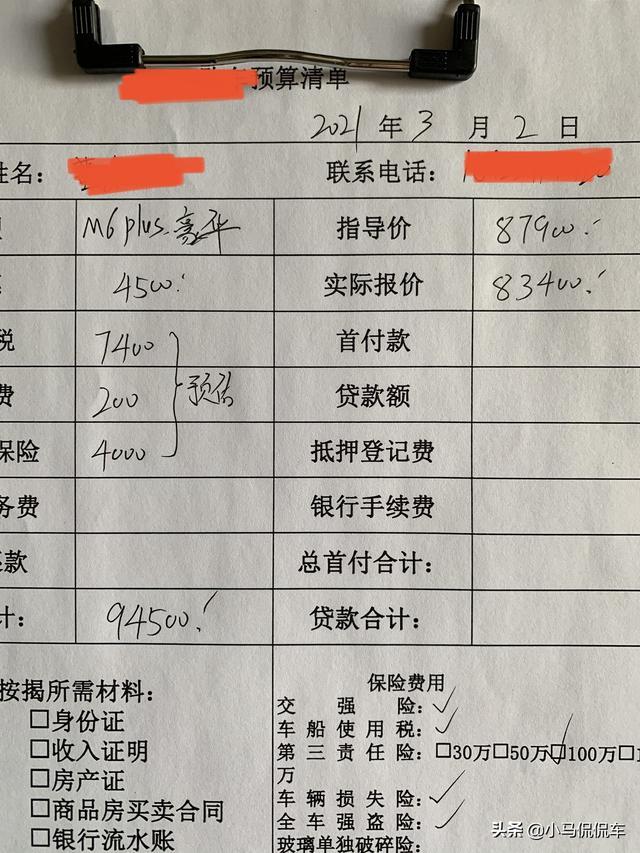 预算清单
2021 年 3 月 2 日
姓名: 联系电话:
M6 plus 豪华 指导价 87900
4500 实际报价 83400
税 7400 首付款
费 200 预估 贷款额
保险 4000 抵押登记费
务费 银行手续费
款 总首付合计:
计: 94500 贷款合计:
按揭所需材料:
□身份证
□收入证明
□房产证
□商品房买卖合同
□银行流水账
保险费用
交强险:✓
车船使用税:✓
第三责任险:□30万□50万□100万□1
万
车辆损失险:✓
全车强盗险:✓
玻璃单独破碎险:
头条 @小马侃侃车